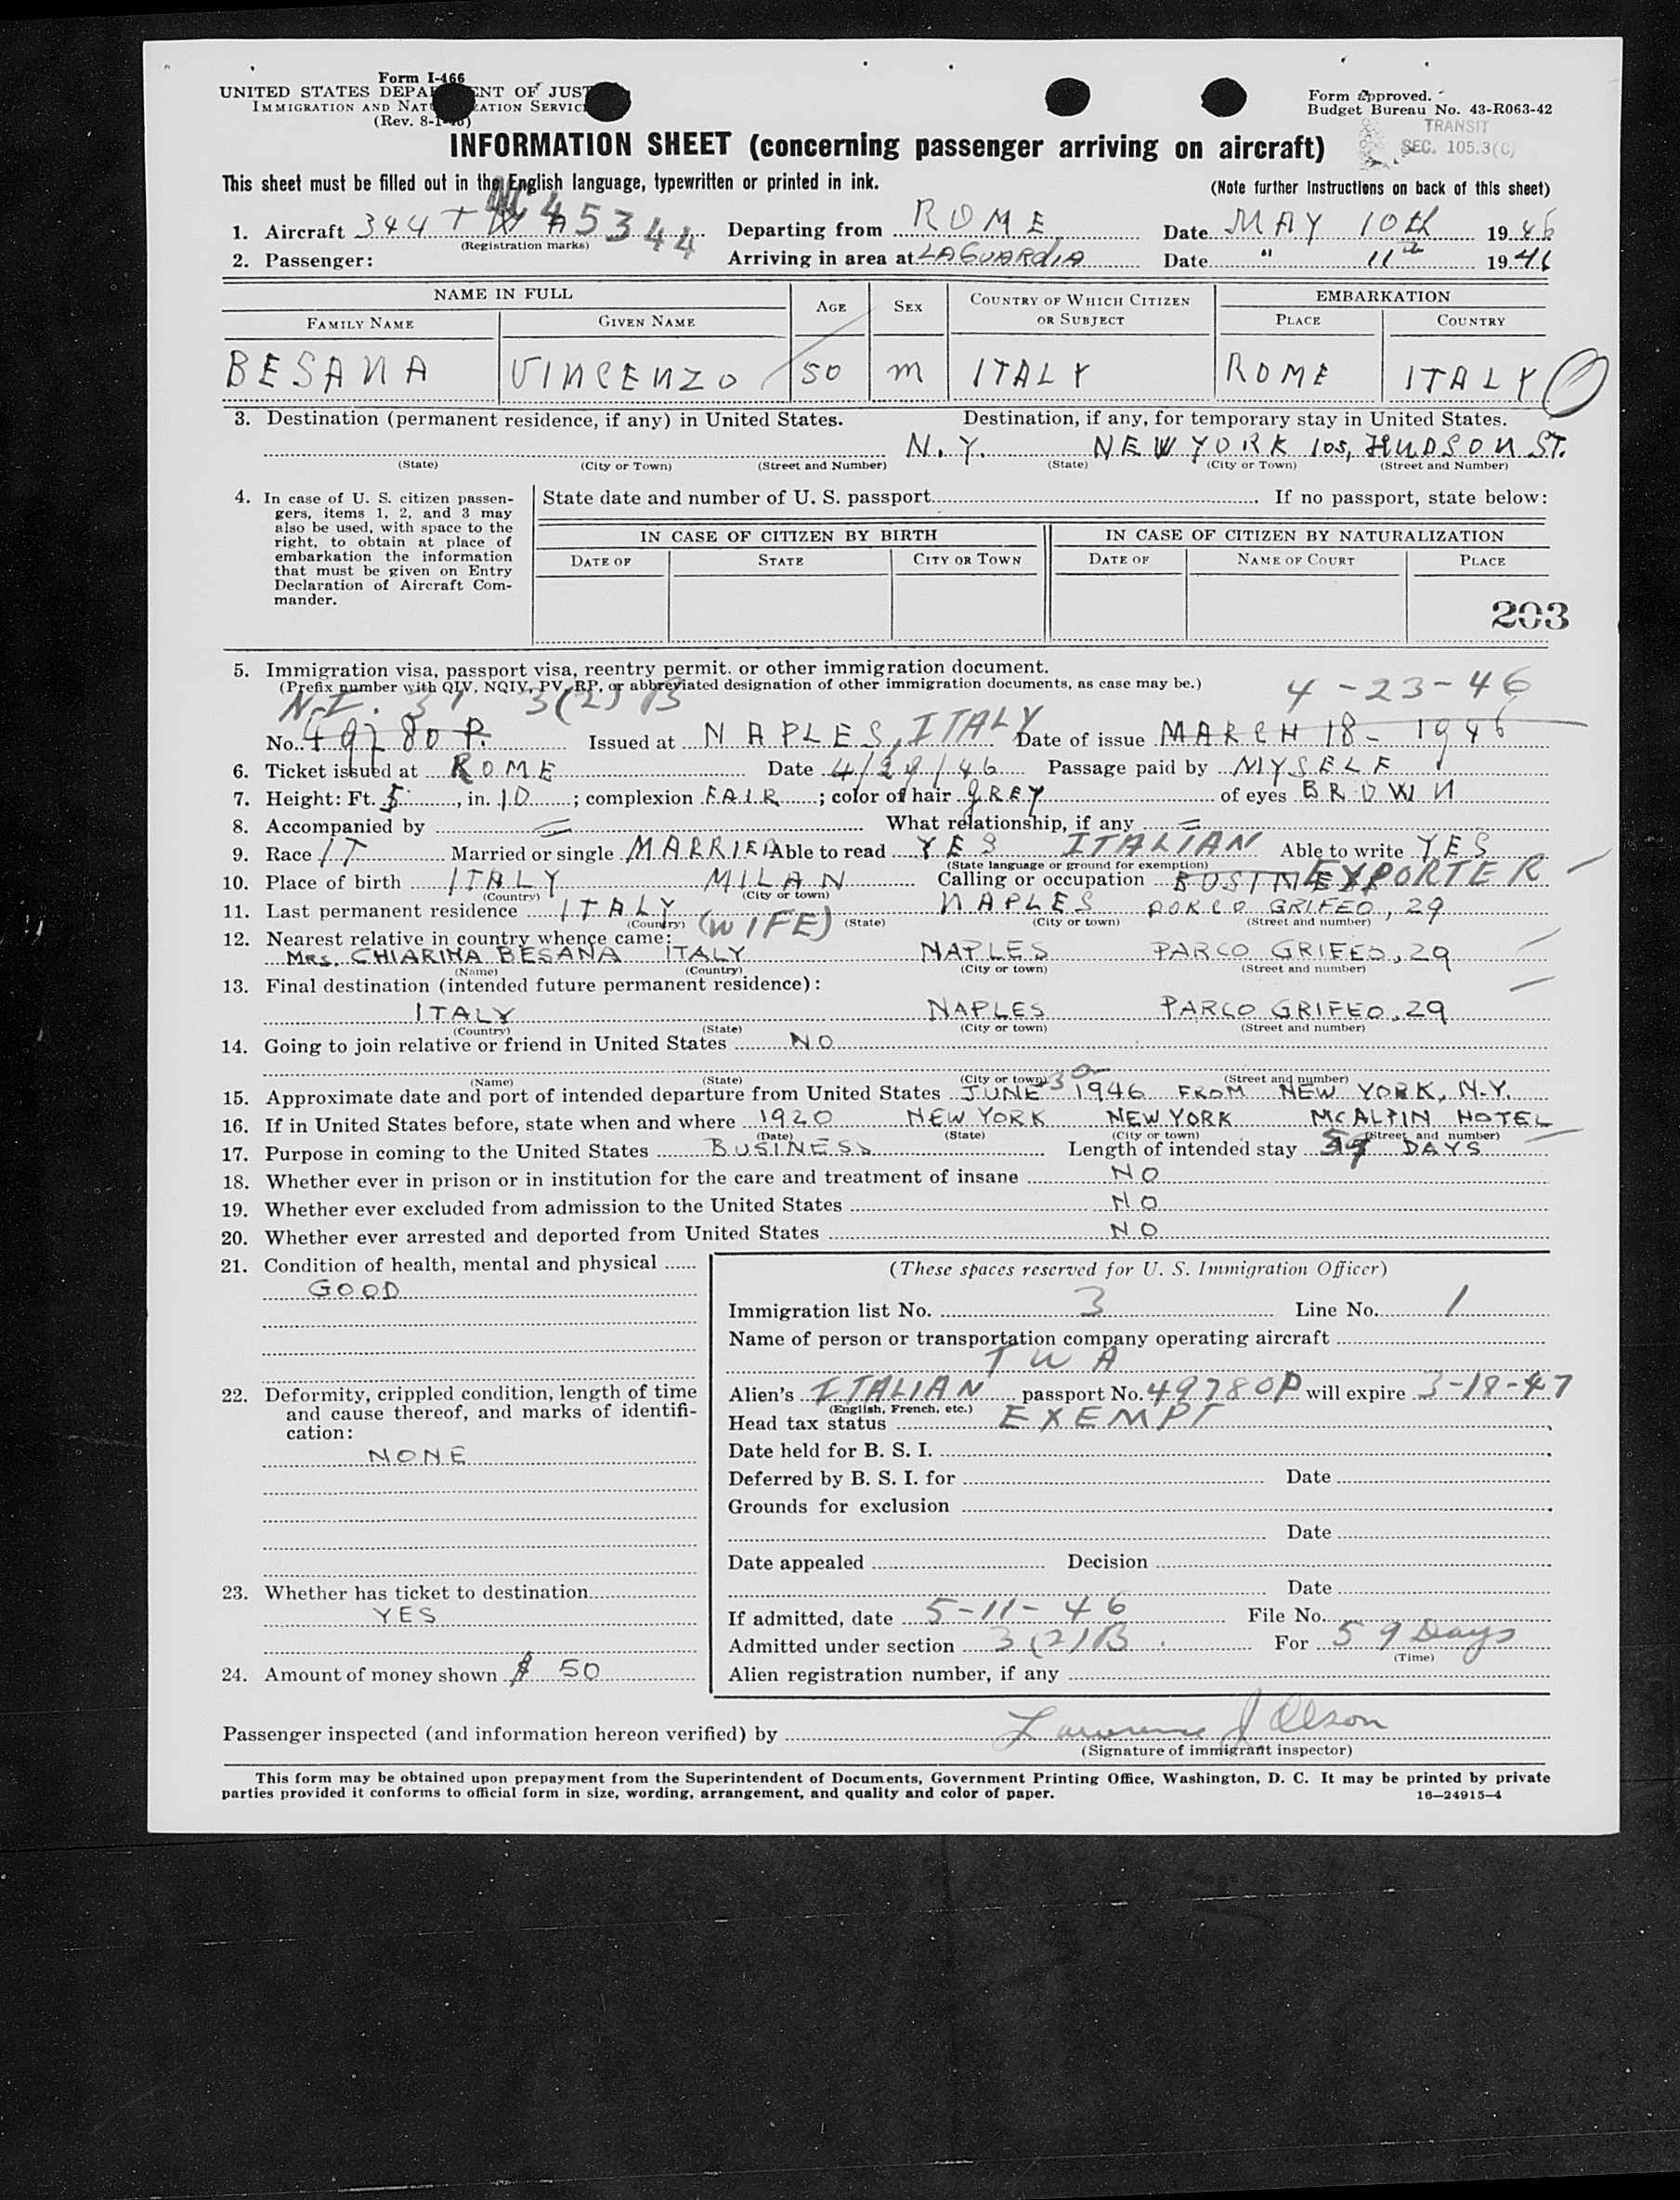 Form I-466
UNITED STATES DEPA NT OF JUST
IMMIGRATION AND NAT ATION SERVIC
(Rev. 8-1- )
Form approved.
Budget Bureau No. 43-R063-42
TRANSIT
SEC. 105.3(C)
INFORMATION SHEET (concerning passenger arriving on aircraft)
This sheet must be filled out in the English language, typewritten or printed in ink.
(Note further Instructions on back of this sheet)
1. Aircraft 344 TWA 45344 Departing from ROME Date MAY 10th 1946
(Registration marks)
2. Passenger: Arriving in area at LAGUARDIA Date " 11th 1946
NAME IN FULL AGE SEX COUNTRY OF WHICH CITIZEN OR SUBJECT EMBARKATION
FAMILY NAME GIVEN NAME PLACE COUNTRY
BESANA VINCENZO 50 M ITALY ROME ITALY
3. Destination (permanent residence, if any) in United States. Destination, if any, for temporary stay in United States.
N.Y. NEW YORK 105, HUDSON ST.
(State) (City or Town) (Street and Number) (State) (City or Town) (Street and Number)
4. In case of U. S. citizen passengers, items 1, 2, and 3 may also be used, with space to the right, to obtain at place of embarkation the information that must be given on Entry Declaration of Aircraft Commander.
State date and number of U. S. passport If no passport, state below:
IN CASE OF CITIZEN BY BIRTH IN CASE OF CITIZEN BY NATURALIZATION
DATE OF STATE CITY OR TOWN DATE OF NAME OF COURT PLACE
203
5. Immigration visa, passport visa, reentry permit, or other immigration document.
(Prefix number with QIV, NQIV, PV, RP, or abbreviated designation of other immigration documents, as case may be.)
N.I. 31 3(2)B 4-23-46
No. 49780 P. Issued at NAPLES, ITALY Date of issue MARCH 18 - 1946
6. Ticket issued at ROME Date 4/29/46 Passage paid by MYSELF
7. Height: Ft. 5, in. 10; complexion FAIR; color of hair GREY of eyes BROWN
8. Accompanied by = What relationship, if any =
9. Race IT Married or single MARRIED Able to read YES ITALIAN Able to write YES
(State language or ground for exemption)
10. Place of birth ITALY MILAN Calling or occupation EXPORTER
(Country) (City or town)
11. Last permanent residence ITALY NAPLES PARCO GRIFEO, 29
(Country) (State) (City or town) (Street and number)
12. Nearest relative in country whence came: (WIFE)
MRS. CHIARINA BESANA ITALY NAPLES PARCO GRIFEO, 29
(Name) (Country) (City or town) (Street and number)
13. Final destination (intended future permanent residence):
ITALY NAPLES PARCO GRIFEO, 29
(Country) (State) (City or town) (Street and number)
14. Going to join relative or friend in United States NO
(Name) (State) (City or town) (Street and number)
15. Approximate date and port of intended departure from United States JUNE 30 1946 FROM NEW YORK, N.Y.
16. If in United States before, state when and where 1920 NEW YORK NEW YORK MCALPIN HOTEL
(Date) (State) (City or town) (Street and number)
17. Purpose in coming to the United States BUSINESS Length of intended stay 59 DAYS
18. Whether ever in prison or in institution for the care and treatment of insane NO
19. Whether ever excluded from admission to the United States NO
20. Whether ever arrested and deported from United States NO
21. Condition of health, mental and physical
GOOD
22. Deformity, crippled condition, length of time and cause thereof, and marks of identification:
NONE
23. Whether has ticket to destination
YES
24. Amount of money shown $ 50
(These spaces reserved for U. S. Immigration Officer)
Immigration list No. 3 Line No. 1
Name of person or transportation company operating aircraft
TWA
Alien's ITALIAN passport No. 49780P will expire 3-18-47
(English, French, etc.)
Head tax status EXEMPT
Date held for B. S. I.
Deferred by B. S. I. for Date
Grounds for exclusion
Date
Date appealed Decision
Date
If admitted, date 5-11-46 File No.
Admitted under section 3(2)B. For 59 Days
(Time)
Alien registration number, if any
Passenger inspected (and information hereon verified) by Lawrence J Olson
(Signature of immigrant inspector)
This form may be obtained upon prepayment from the Superintendent of Documents, Government Printing Office, Washington, D. C. It may be printed by private
parties provided it conforms to official form in size, wording, arrangement, and quality and color of paper.
16—24915-4